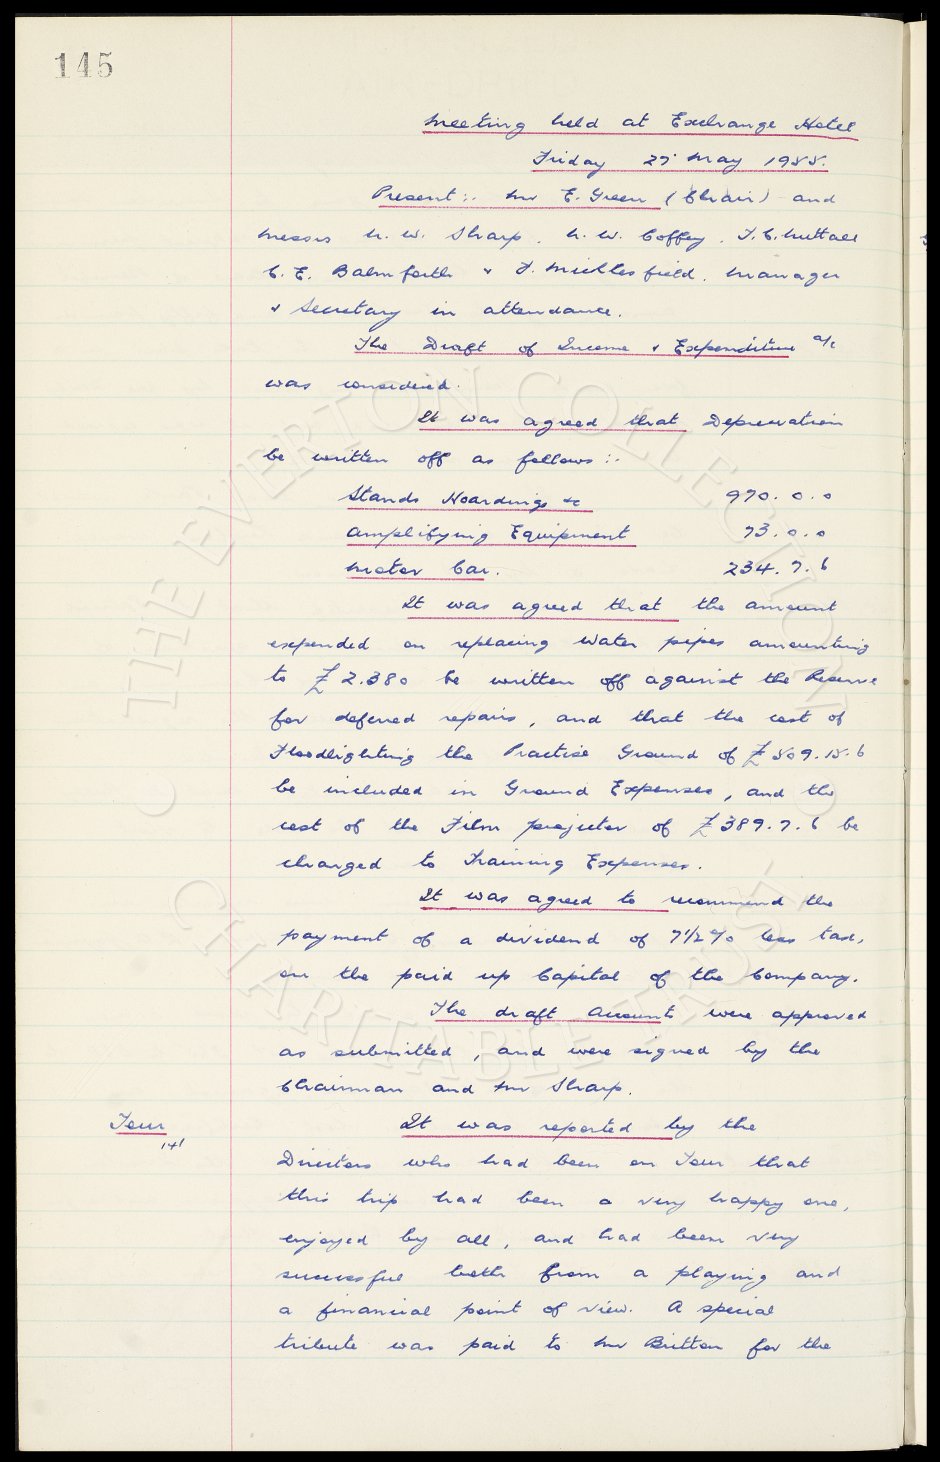 145
Meeting held at Exchange Hotel
Friday 27 May 1955.
Present:- Mr E. Green (Chair) and
Messrs N. W. Sharp. N. W. Coffey. T. C. Nuttall
C. E. Balmforth & F. Micklesfield. Manager
& Secretary in attendance.
The Draft of Income & Expenditure a/c
was considered.
It was agreed that Depreciation
be written off as follows:-
Stands Hoardings &c 970. 0. 0
Amplifying Equipment 73. 0. 0
Motor Car. 234. 7. 6
It was agreed that the amount
expended on replacing water pipes amounting
to £2.380 be written off against the Reserve
for deferred repairs, and that the cost of
Floodlighting the Practise Ground of £509.15.6
be included in Ground Expenses, and the
cost of the Film projector of £389.7.6 be
charged to Training Expenses.
It was agreed to recommend the
payment of a dividend of 7 1/2 % less tax,
on the paid up Capital of the Company.
The draft Accounts were approved
as submitted, and were signed by the
Chairman and Mr Sharp.
Tour
141
It was reported by the
Directors who had been on Tour that
this trip had been a very happy one,
enjoyed by all, and had been very
successful both from a playing and
a financial point of view. A special
tribute was paid to Mr Britton for the
© THE EVERTON COLLECTION ©
CHARITABLE TRUST